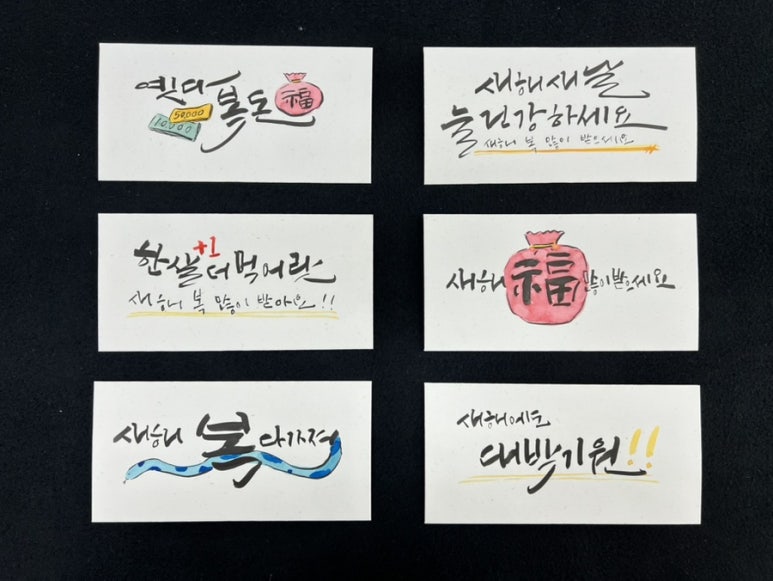 옛다 복돈 福
50,000
10,000
새해새날
늘건강하세요
새해 복 많이 받으세요
+1
한살더먹어릿
새해 복 많이 받아요!!
새해 福 많이받으세요
새해 복 다가져
새해에도
대박기원!!